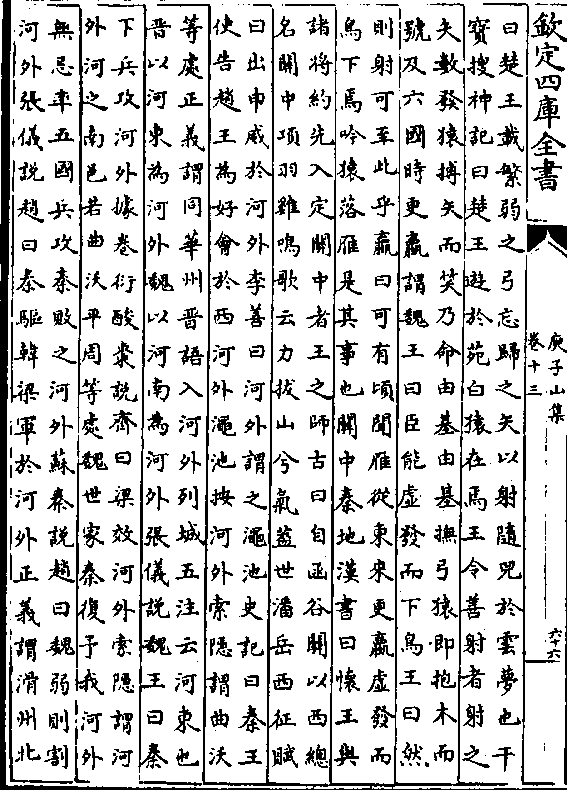 欽定四庫全書
庾子山集
卷十三
六十六
曰楚王載繁弱之弓忘歸之矢以射隨兕於雲夢也干
寶搜神記曰楚王遊於苑白猿在焉王令善射者射之
矢數發猿搏矢而笑乃命由基由基撫弓猿即抱木而
號及六國時更羸謂魏王曰臣能虛發而下鳥王曰然
則射可至此乎羸曰可有頃聞雁從東來更羸虛發而
鳥下焉吟猿落雁是其事也關中秦地漢書曰懷王與
諸將約先入定關中者王之師古曰自函谷關以西總
名關中項羽雞鳴歌云力拔山兮氣蓋世潘岳西征賦
曰出申威於河外李善曰河外謂之澠池史記曰秦王
使告趙王為好會於西河外澠池按河外索隱謂曲沃
等處正義謂同華州晉語入河外列城五注云河東也
晉以河東為河外魏以河南為河外張儀說魏王曰秦
下兵攻河外據卷衍酸棗說齊曰梁效河外索隱謂河
外河之南邑若曲沃平周等處魏世家秦復予我河外
無忌率五國兵攻秦敗之河外蘇秦說趙曰魏弱則割
河外張儀說趙曰秦驅韓梁軍於河外正義謂滑州北